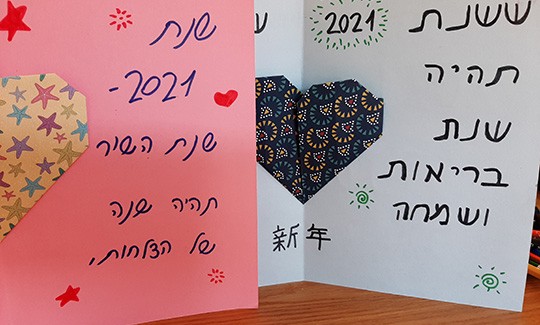 שנת
2021-
שנת השיר
תהיה שנה
של הצלחות,
ששנת
2021
תהיה
שנת
בריאות
ושמחה
新年